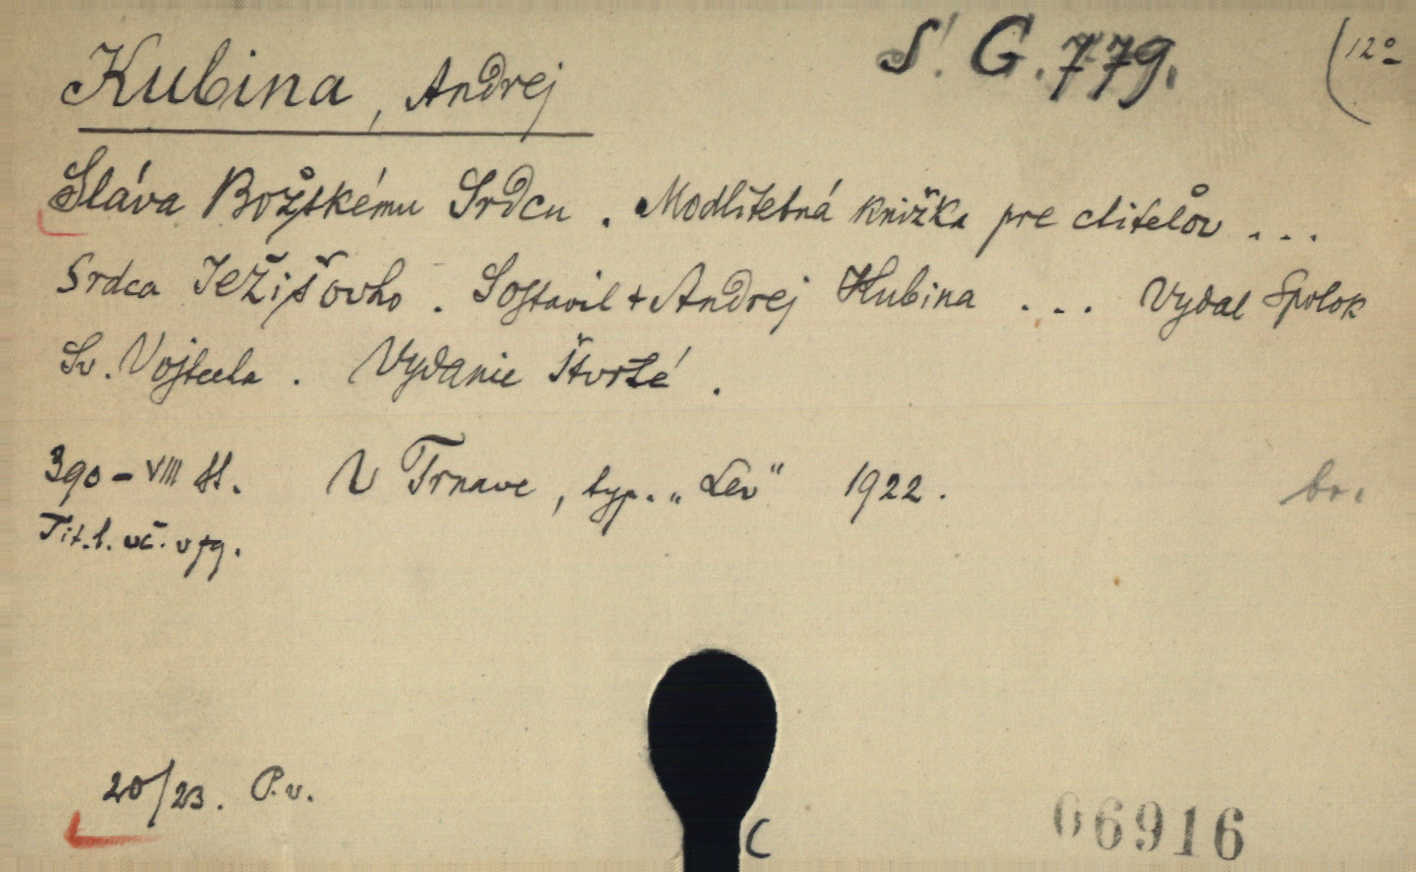 Kubina, Andrej
S. G. 779.
(12º
Sláva Božskému Srdcu. Modlitebná knižka pre ctiteľov ...
Srdca Ježišovho. Sostavil + Andrej Kubina ... Vydal Spolok
Sv. Vojtecha. Vydanie štvrté.
390 - VIII st. V Trnave, typ. „Lev" 1922. br.
Tit. l. vč. v pg.
20/23. P. v.
C
06916